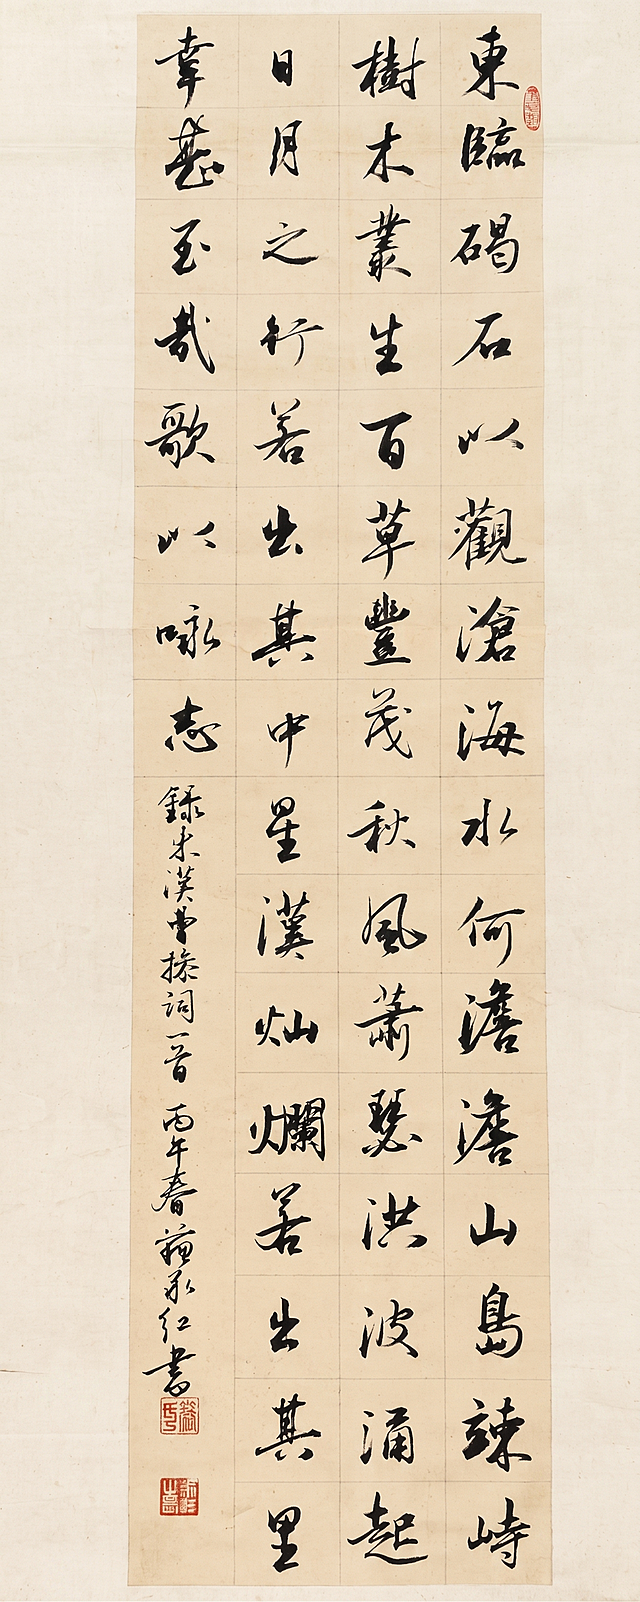 東臨碣石以觀滄海水何澹澹山島竦峙
樹木叢生百草豐茂秋風蕭瑟洪波涌起
日月之行若出其中星漢灿爛若出其里
幸甚至哉歌以咏志
錄末漢曹操詞一首 丙午春 承红書